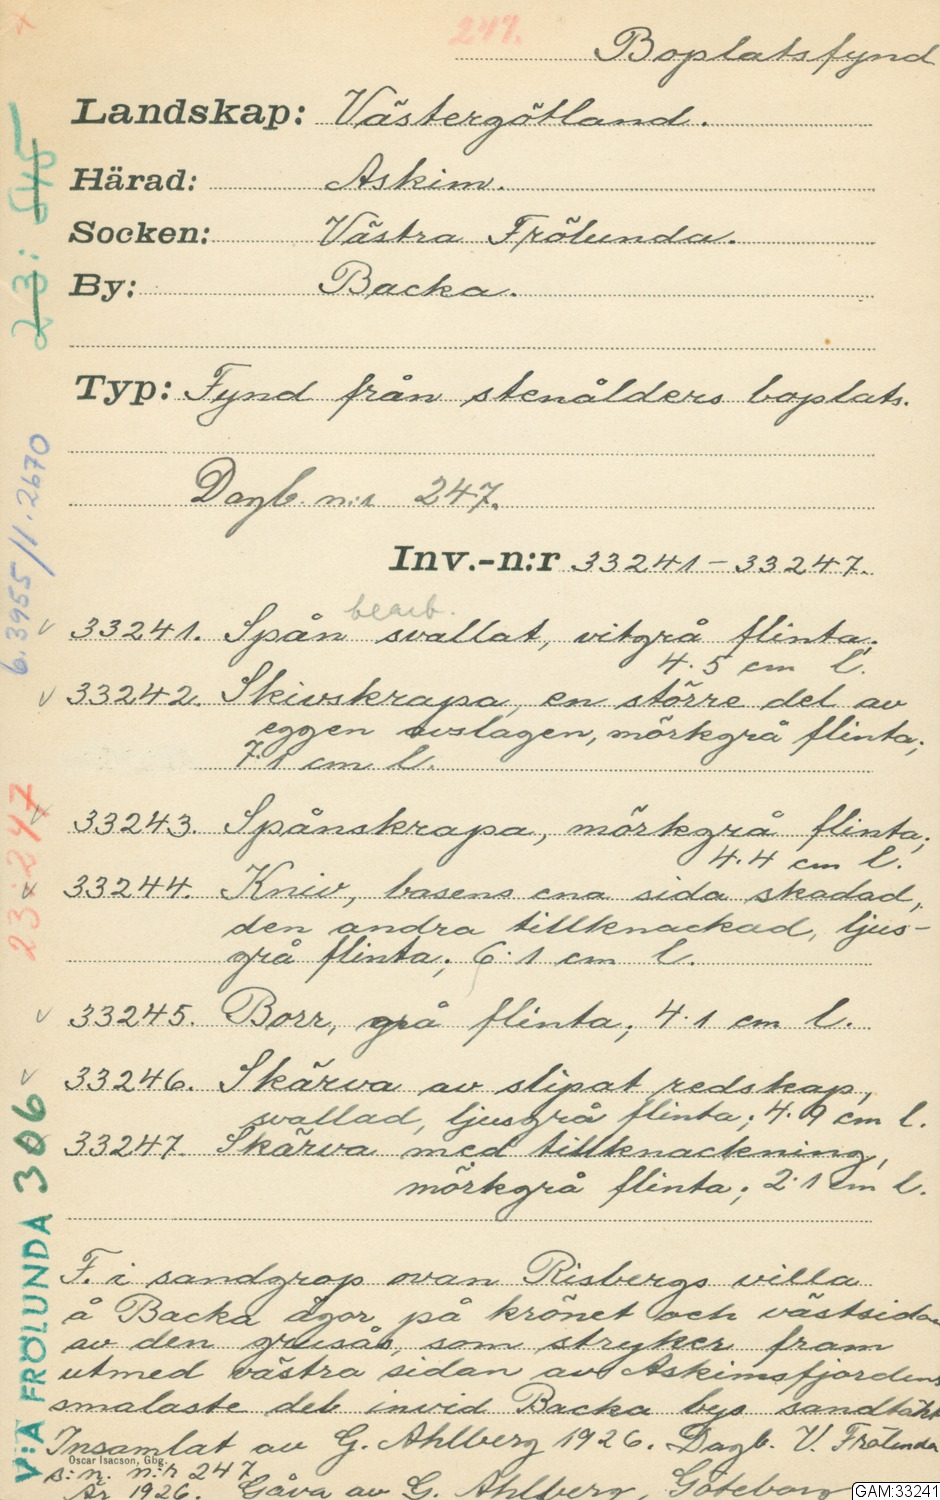 247.
Boplatsfynd
Landskap: Västergötland.
Härad: Askim.
Socken: Västra Frölunda.
By: Backa.
Typ: Fynd från stenålders boplats.
Dagb. n:r 247.
Inv.-n:r 33241-33247.
bearb.
33241. Spån svallat, vitgrå flinta;
4.5 cm l.
33242. Skivskrapa, en större del av
eggen avslagen, mörkgrå flinta;
7.1 cm l.
33243. Spånskrapa, mörkgrå flinta;
4.4 cm l.
33244. Kniv, basens ena sida skadad,
den andra tillknackad, ljus-
grå flinta; 6.1 cm l.
33245. Borr, grå flinta; 4.1 cm l.
33246. Skärva av slipat redskap,
svallad, ljusgrå flinta; 4.9 cm l.
33247. Skärva med tillknackning,
mörkgrå flinta; 2.1 cm l.
F. i sandgrop ovan Risbergs villa
å Backa ägor på krönet och västsidan
av den grusås, som stryker fram
utmed västra sidan av Askimsfjordens
smalaste del invid Backa bys sandtäkt
Insamlat av G. Ahlberg 1926. Dagb. V. Frölunda
Oscar Isacson, Gbg.
s:n. n:r 247
År 1926. Gåva av G. Ahlberg, Göteborg
23:545
6.3955/1.2670
23:247
V:A FRÖLUNDA 306
GAM:33241